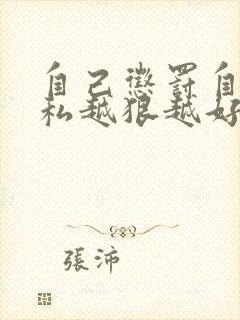 自己懲罰自
私越狠越好
張沛